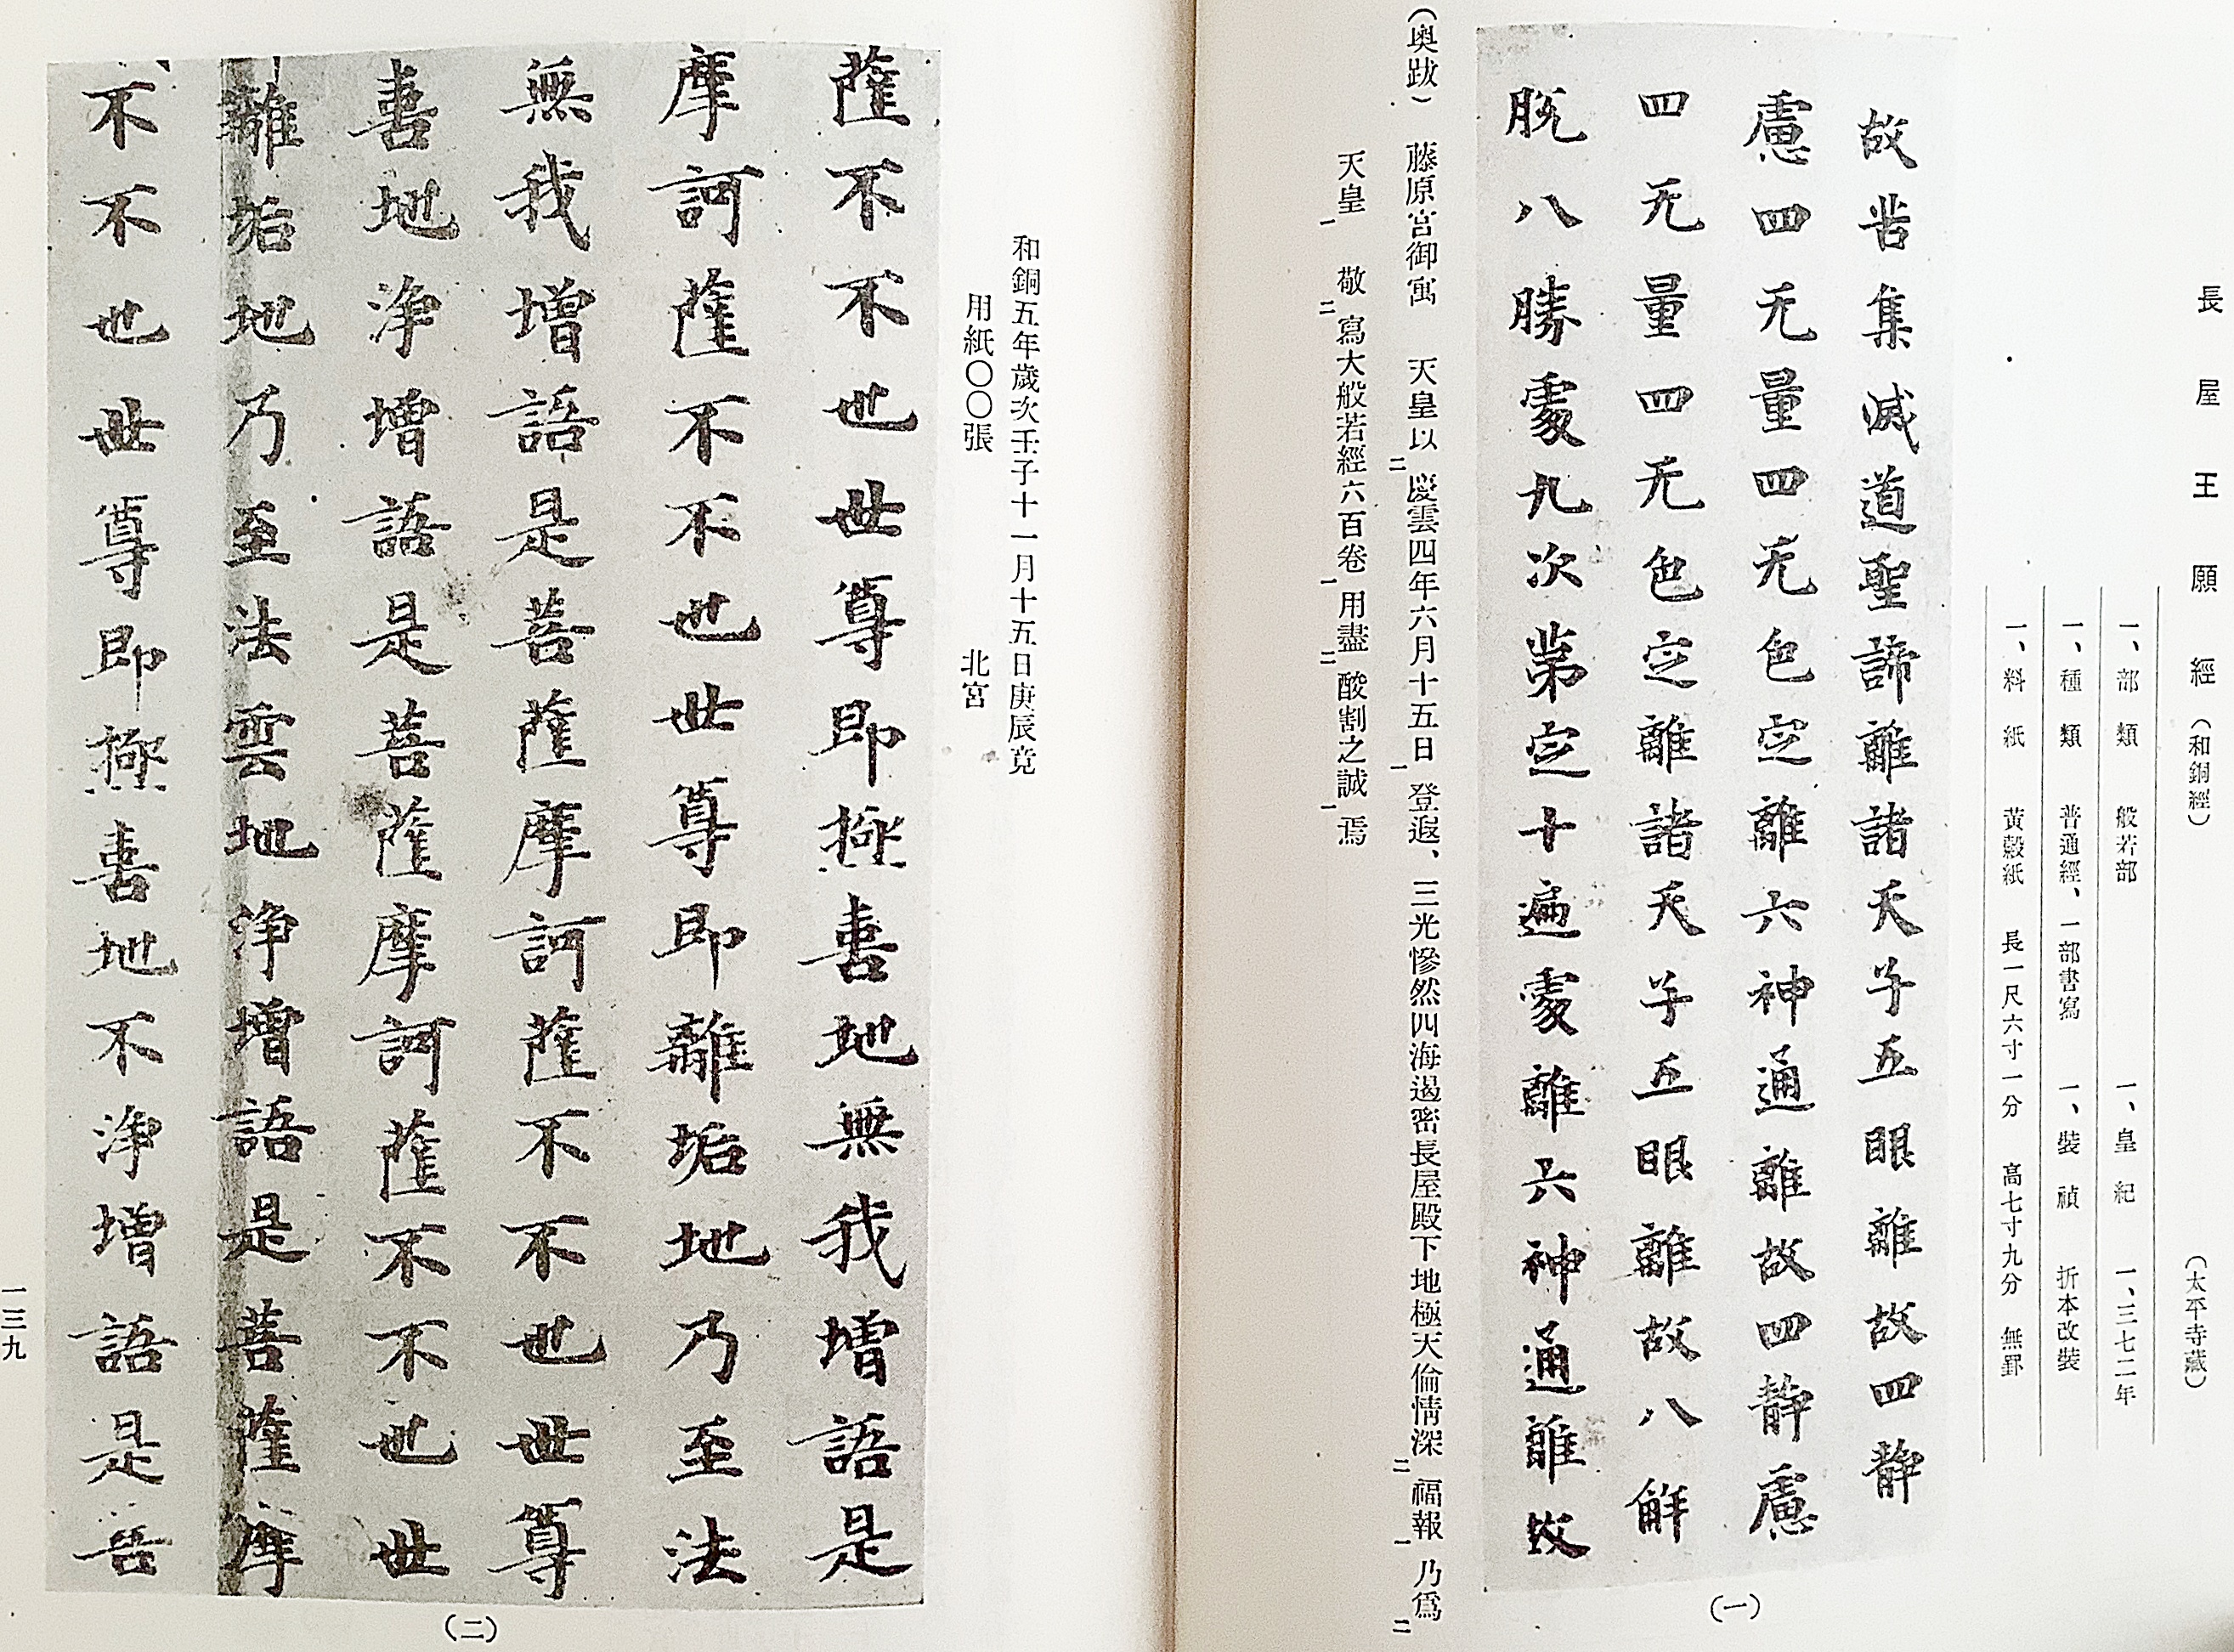 長屋王願經（和銅經）（太平寺藏）
一、部類 般若部 一、皇紀 一、三七二年
一、種類 普通經、一部書寫 一、裝禎 折本改裝
一、料紙 黃穀紙 長一尺六寸一分 高七寸九分 無罫
故苦集滅道聖諦離諸天子五眼離故四靜
慮四无量四无色定離六神通離故四靜慮
四无量四无色定離諸天子五眼離故八解
脫八勝處九次第定十遍處離六神通離故
（一）
（奧跋） 藤原宮御寓 天皇以二慶雲四年六月十五日一登遐、三光慘然四海遏密長屋殿下地極天倫情深二福報一乃爲二
天皇一 敬二寫大般若經六百卷一用盡二酸割之誠一焉
和銅五年歲次壬子十一月十五日庚辰竟
用紙〇〇張 北宮
薩不不也世尊即極喜地無我增語是
摩訶薩不不也世尊即離垢地乃至法
無我增語是菩薩摩訶薩不不也世尊
喜地淨增語是菩薩摩訶薩不不也世
離垢地乃至法雲地淨增語是菩薩摩
不不也世尊即極喜地不淨增語是菩
（二）
一三九